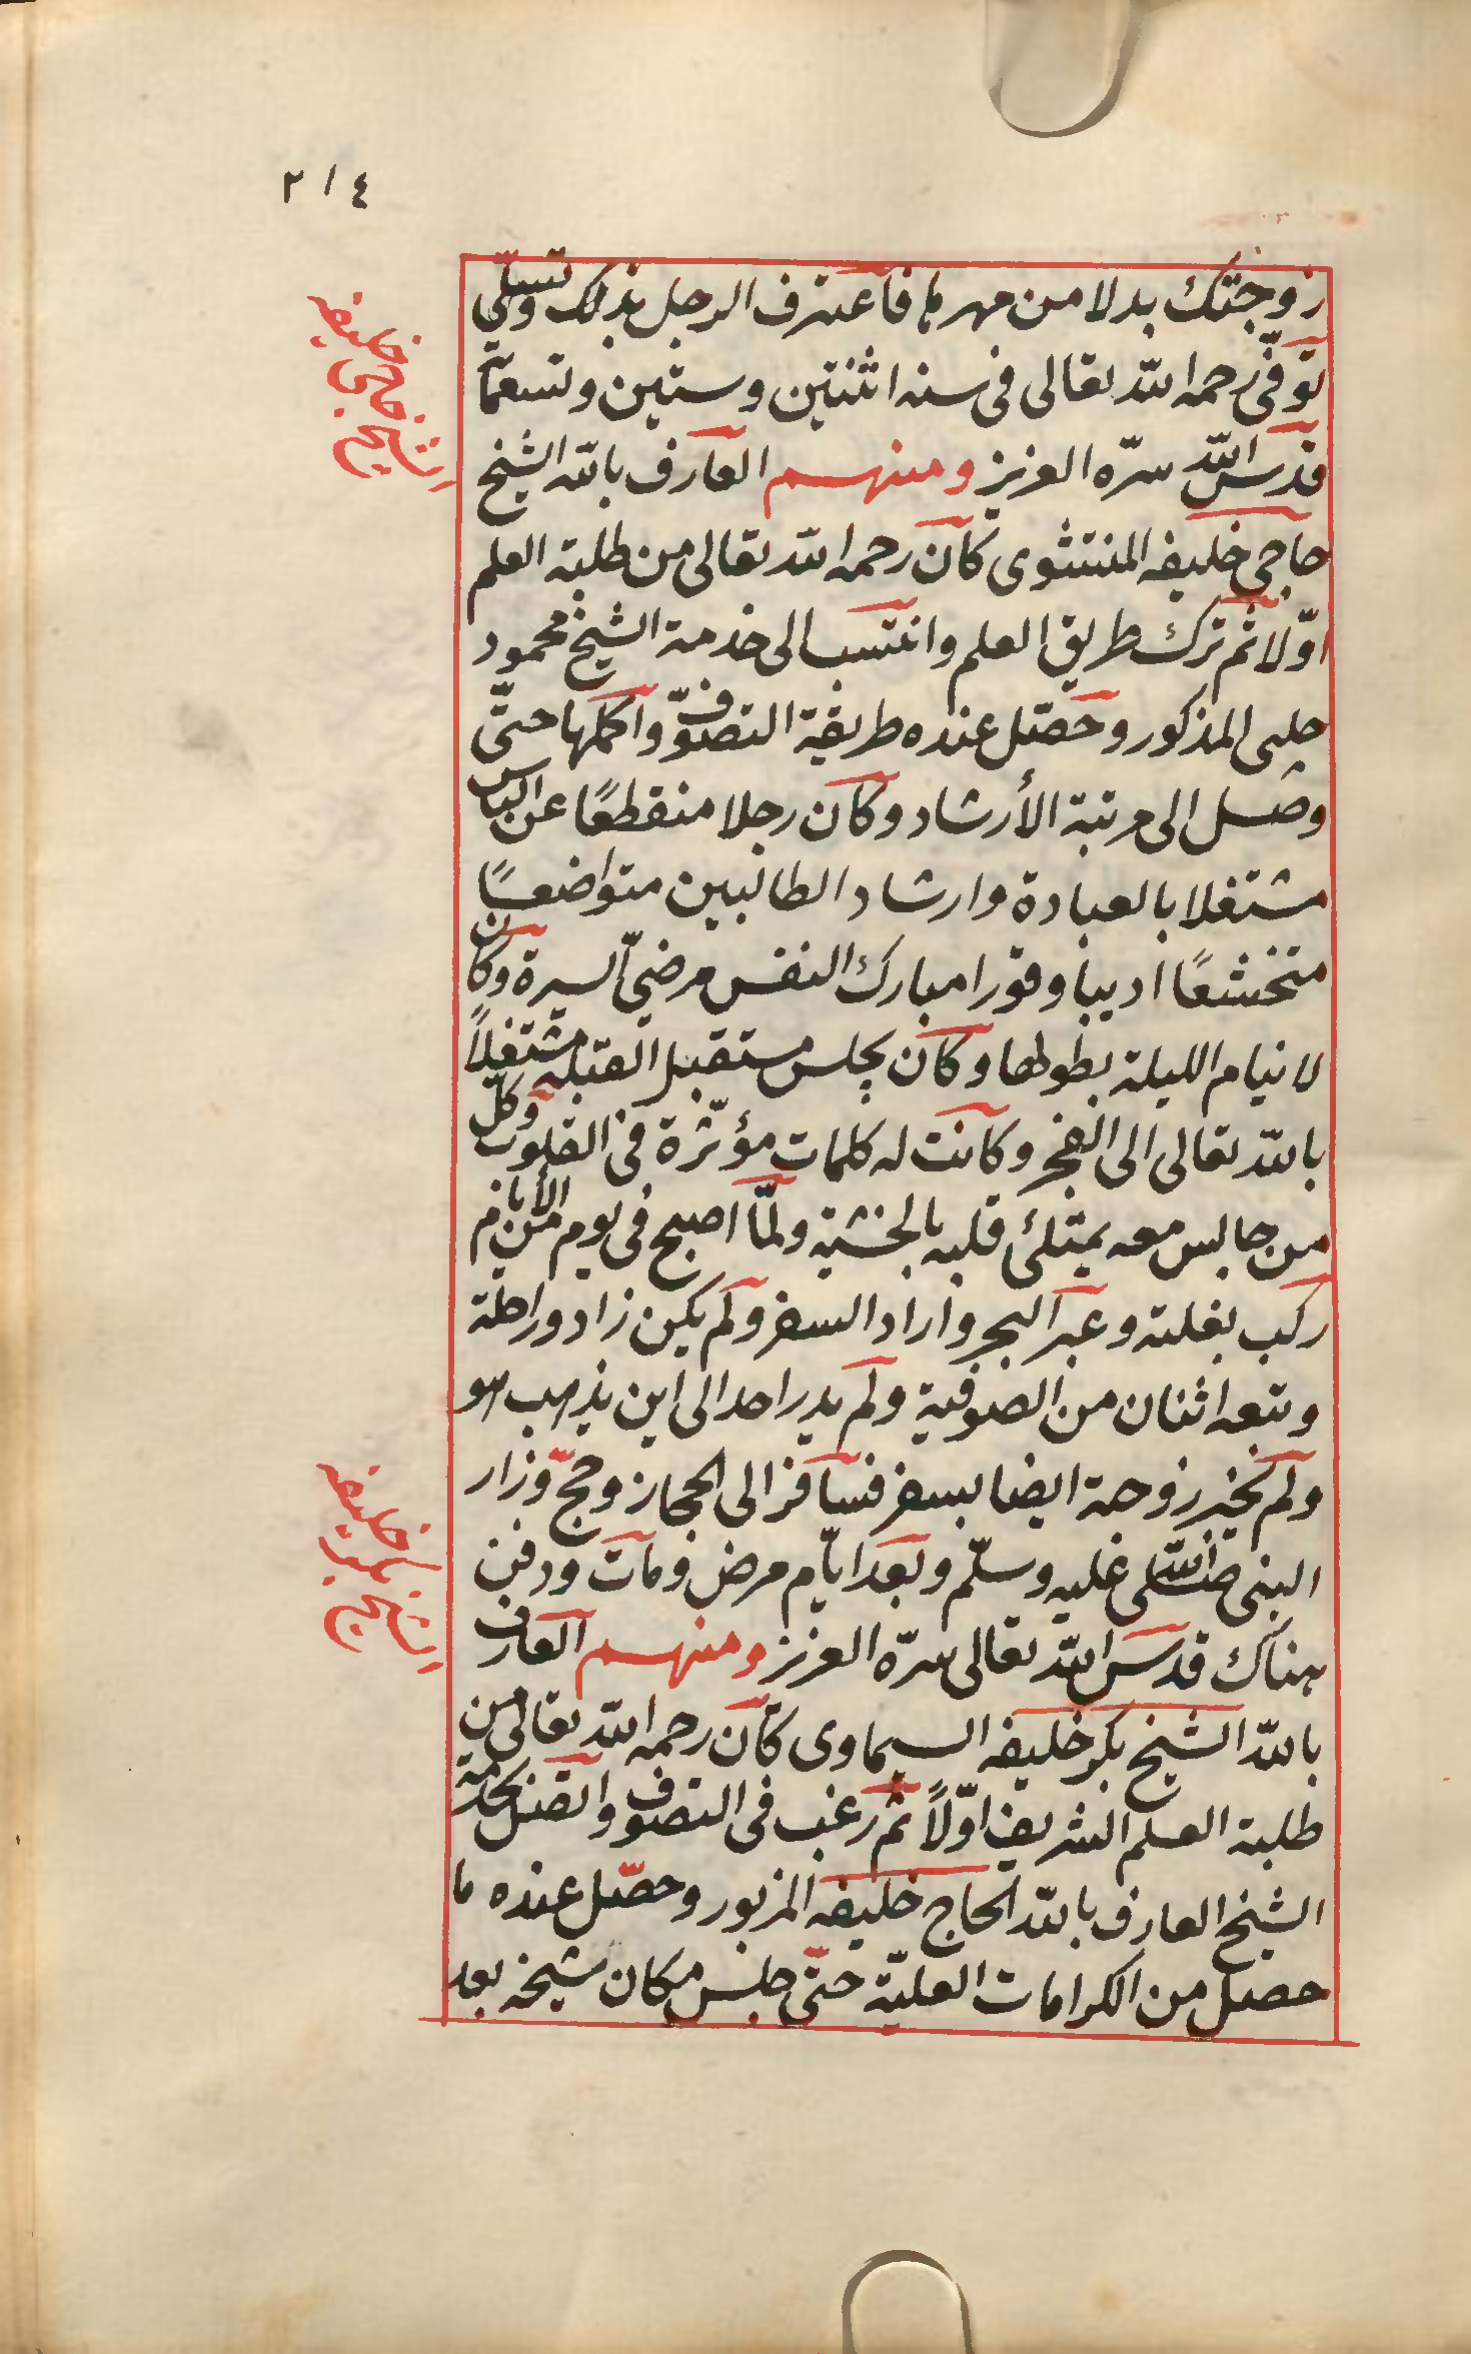 ٢١٤
زوجتك بدلا من مهرها فاعترف الرجل بذلك وتسلّي
توفّي رحمه الله تعالى فى سنه اثنتين وستين وتسعمائة
قدس الله سرّه العزيز ومنهم العارف بالله الشيخ
الشيخ حاجى خليفه
حاجى خليفه المنتشوى كان رحمه الله تعالى من طلبة العلم
اوّلا ثم ترك طريق العلم وانتسب الى خدمة الشيخ محمود
چلبى المذكور وحصّل عنده طريقة التصوّف واكملها حتّى
وصل الى مرتبة الأرشاد وكان رجلا منقطعًا عن الناس
مشتغلا بالعبادة وارشاد الطالبين متواضعًا
متخشعًا اديبا وقورا مبارك النفس مرضىّ السيرة وكان
لا ينام الليلة بطولها وكان يجلس مستقبل القبله مشتغلاً
بالله تعالى الى الفجر وكانت له كلمات مؤثّرة فى القلوب وكلّ
من جالس معه يمتلئ قلبه بالخشية ولمّا اصبح فى يوم من الأيام
ركب بغلته وعبر البحر واراد السفر ولم يكن زاد وراحلة
وتبعه اثنان من الصوفية ولم يدر احد الى اين يذهب هو
ولم يخبر زوجة ايضا بسفر فسافر الى الحجاز وحجّ وزار
النبى صلى الله عليه وسلّم وبعد ايّام مرض ومات ودفن
هناك قدس الله تعالى سرّه العزيز ومنهم العارف
الشيخ بكر خليفه
بالله الشيخ بكر خليفه السيماوى كان رحمه الله تعالى من
طلبة العلم الشريف اوّلاً ثم رغب فى التصوف واتصل بخدمة
الشيخ العارف بالله الحاج خليفه المزبور وحصّل عنده ما
حصل من الكرامات العليّة حتّى جلس مكان شيخه بعد